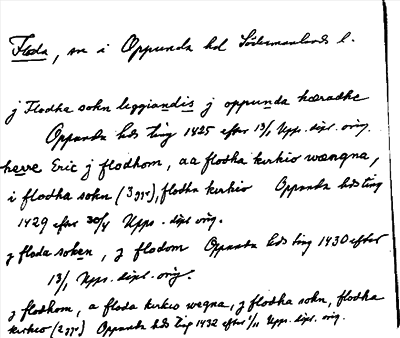 Floda, sn i Oppunda hd Södermanlands l.
j Flodha sokn leggiandis j oppunda hæradhe
Oppunda hds ting 1425 efter 13/1 Upps. dipl. orig.
herre Eric j flodhom, aa flodha kirkio wængna,
i flodha sokn (3 ggr), flodha kirkio Oppunda hds ting
1429 efter 30/4 Upps. dipl. orig.
j floda soken, j flodom Oppunda hds ting 1430 efter
13/1 Upps. dipl. orig.
j flodhom, a floda kirkio wegna, j flodha sokn, flodha
kirkio (2 ggr) Oppunda hds ting 1432 efter 1/11 Upps. dipl. orig.